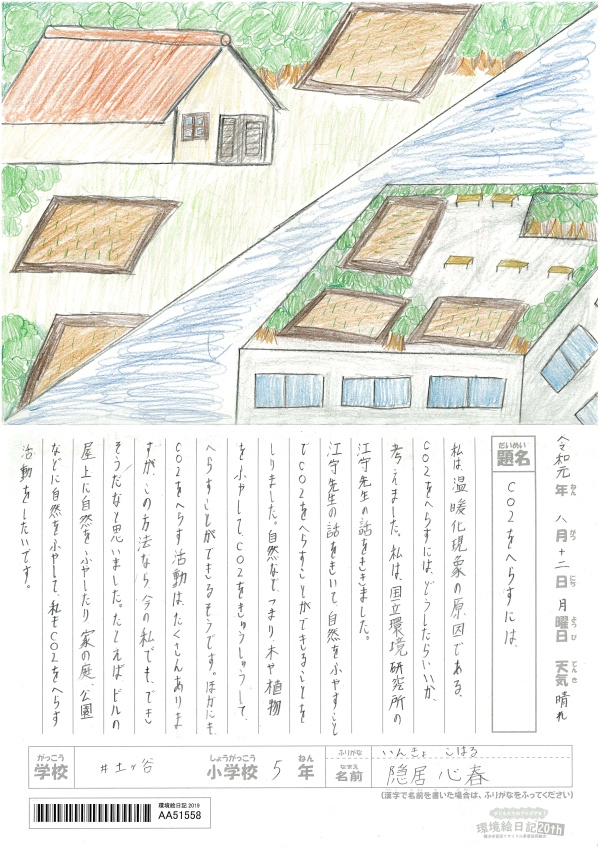 令和元年 八月十二日 月曜日 天気 晴れ
ねん がつ にち ようび てんき
だいめい
題名
CO2をへらすには
私は温暖化現象の原因である、
CO2をへらすには、どうしたらいいか、
考えました。私は、国立環境研究所の
江守先生の話をききました。
江守先生の話をきいて、自然をふやすこと
でCO2をへらすことができることを
しりました。自然など、つまり木や植物
を小やして、CO2をきゅうしゅうして、
へらすことができるそうです。ほかにも、
CO2をへらす活動は、たくさんありま
すが、この方法なら今の私でも、でき
そうだなと思いました。たとえば、ビルの
屋上に自然をふやしたり家の庭、公園
などに自然をふやして、私もCO2をへらす
活動をしたいです。
がっこう しょうがっこう ねん
学校 井土ヶ谷 小学校 5年
ふりがな いんきょ こはる
なまえ
名前 隠居 心春
(漢字で名前を書いた場合は、ふりがなをふってください)
環境絵日記 2019
AA51558
環境絵日記20th